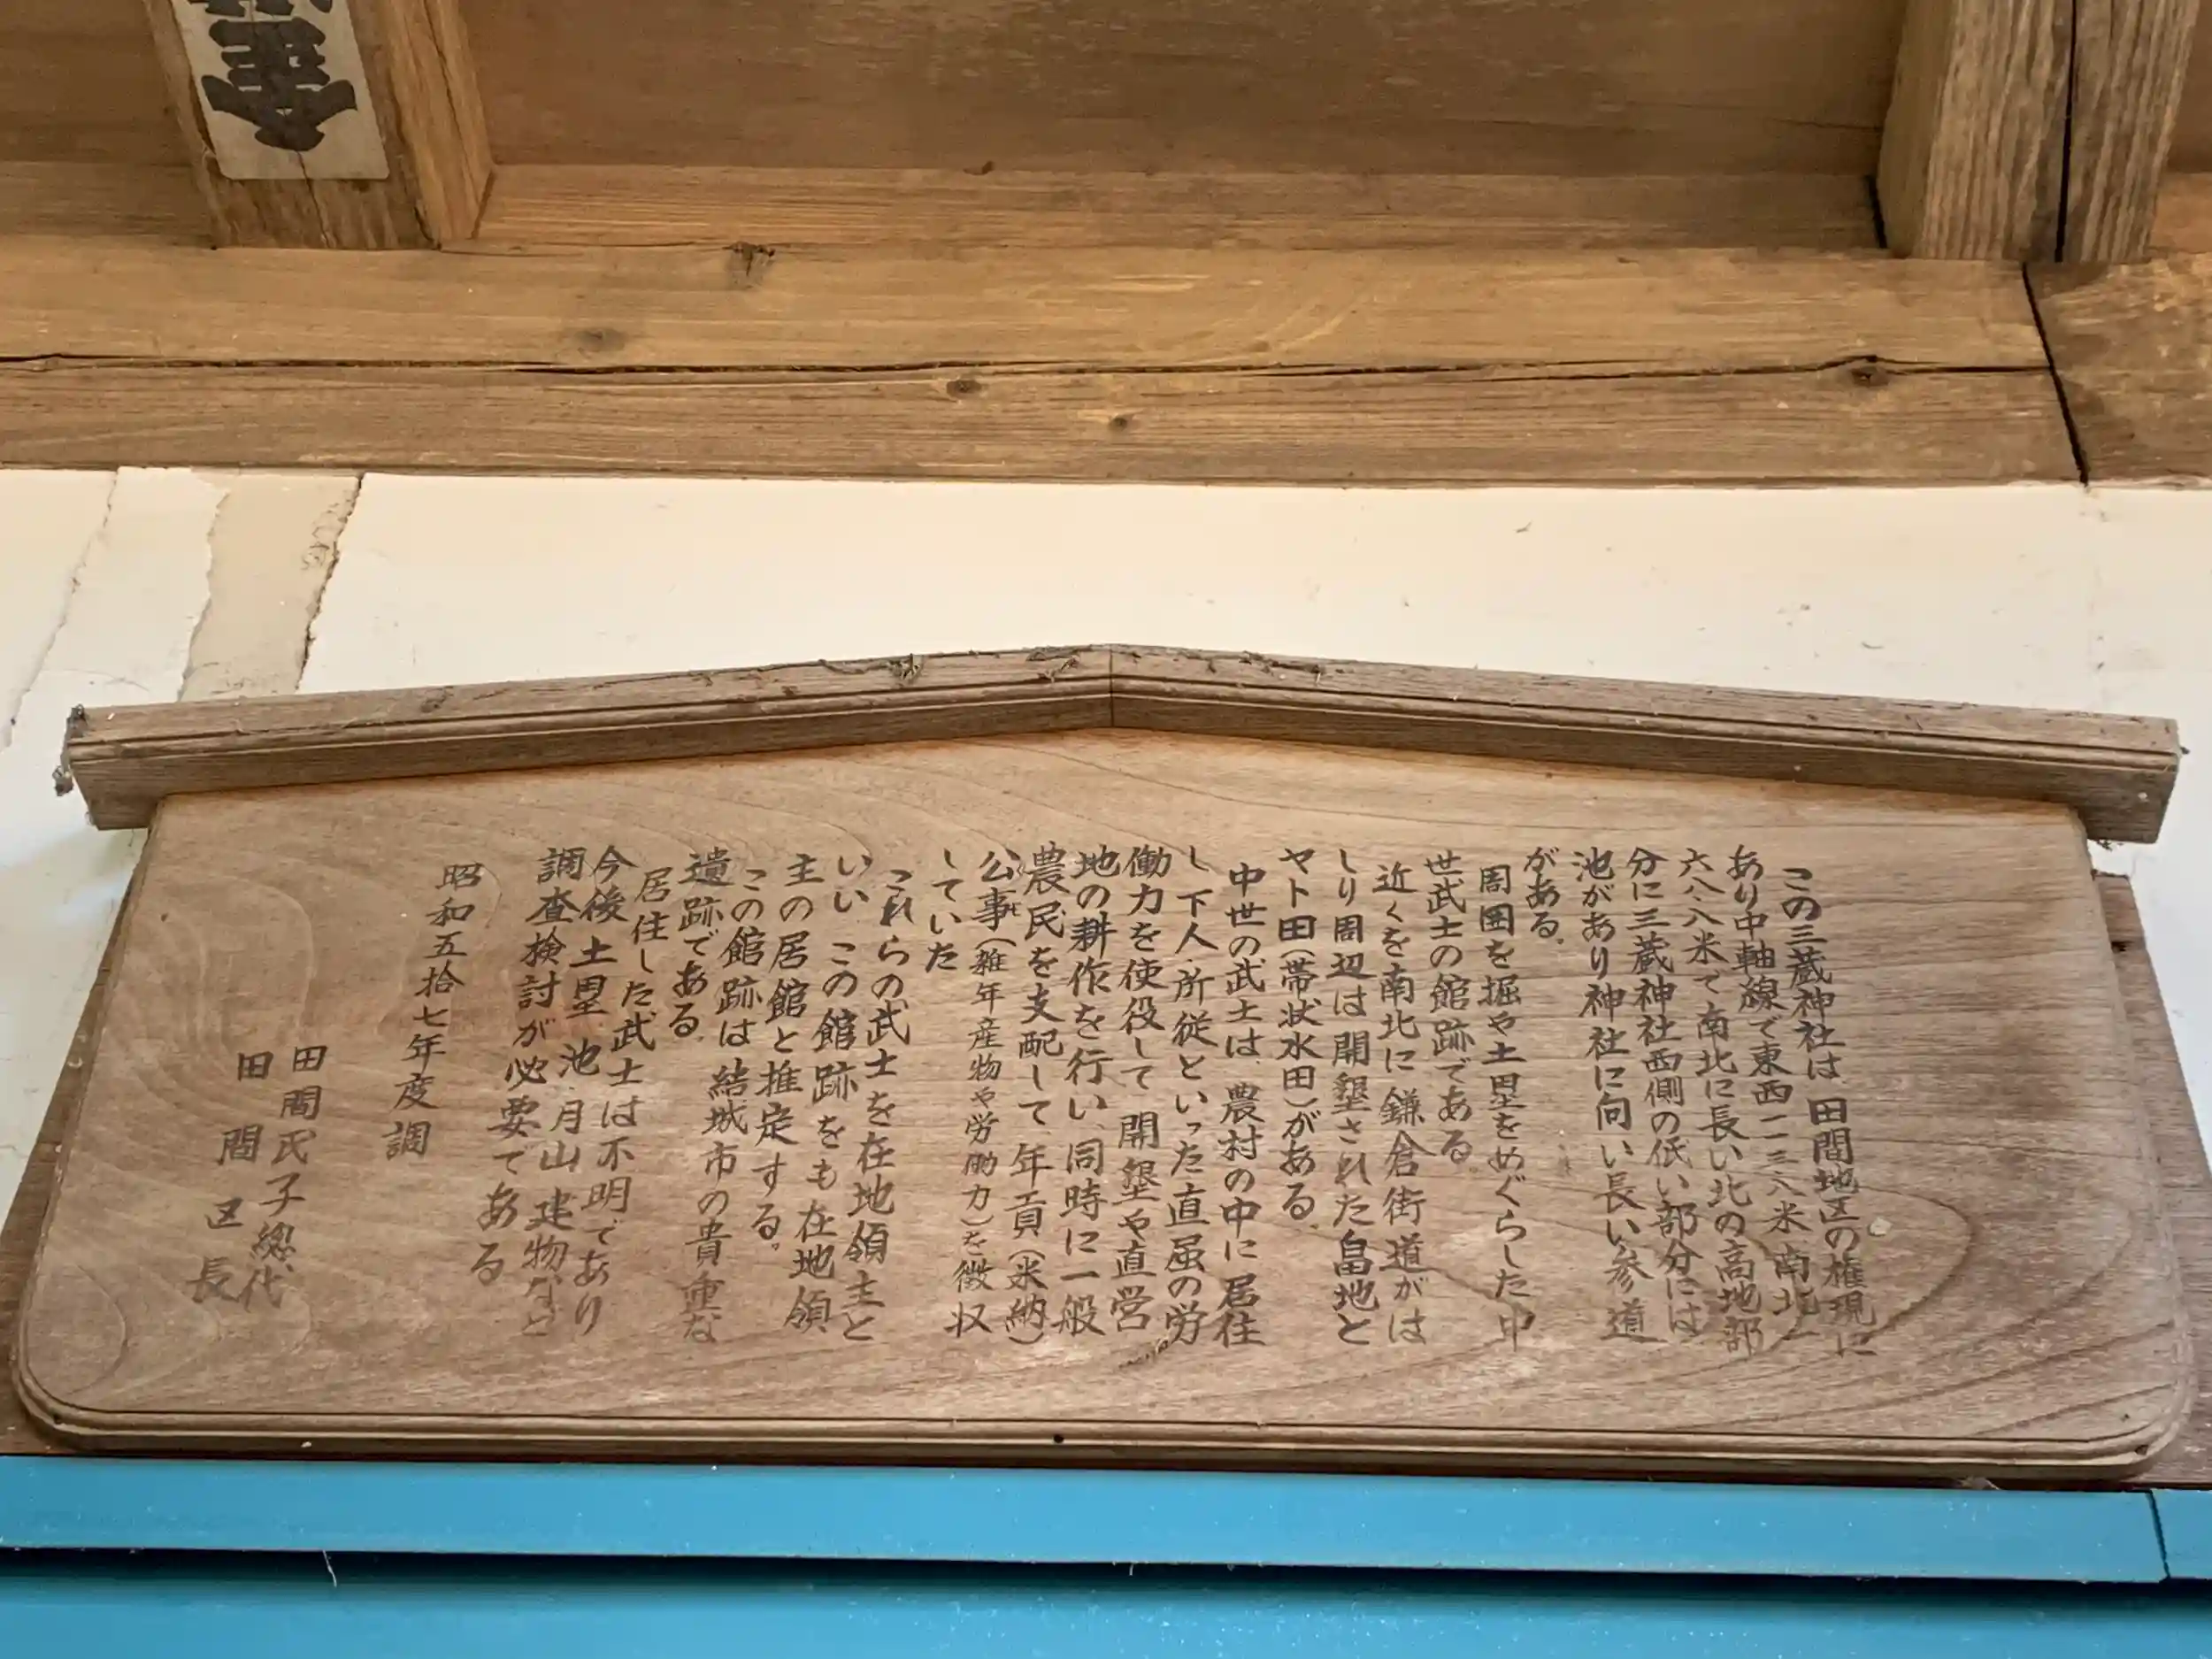 この三蔵神社は田間地区の権現に
あり中軸線で東西一一三・八米南北一
六八・八米で南北に長い北の高地部
分に三蔵神社西側の低い部分には
池があり神社に向い長い参道
がある。
周囲を掘や土塁をめぐらした中
世武士の館跡である。
近くを南北に鎌倉街道がは
しり周辺は開墾された畠地と
ヤト田(帯状水田)がある。
中世の武士は、農村の中に居住
し下人、所従といった直属の労
働力を使役して開墾や直営
地の耕作を行い、同時に一般
農民を支配して、年貢(米納)
公事(雑年産物や労働力)を徴収
していた
これらの武士を在地領主と
いい、この館跡をも在地領
主の居館と推定する。
この館跡は結城市の貴重な
遺跡である。
居住した武士は不明であり
今後土塁、池、月山、建物など
調査検討が必要である
昭和五拾七年度調
田間氏子總代
田間区長